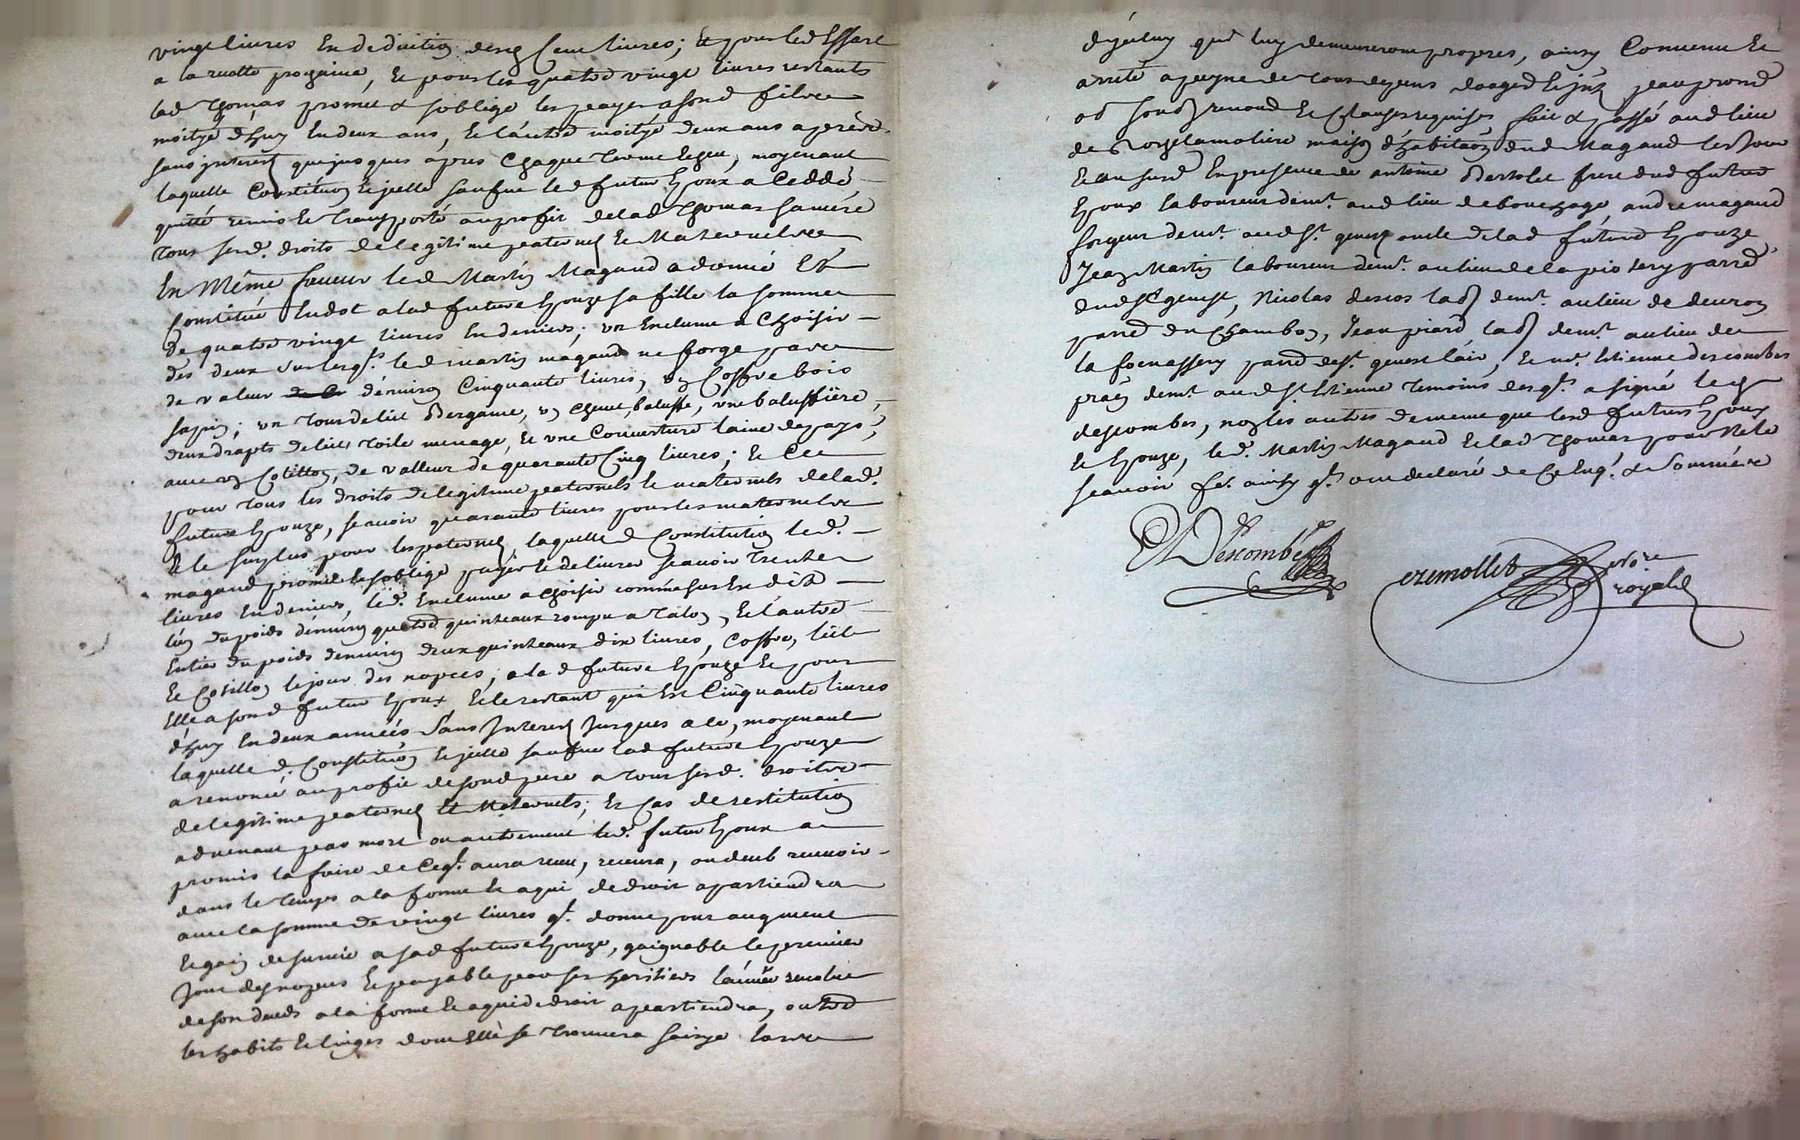 vingt livres En deduction desd Cent livres; Et pour led Effart
a la recolte prochaine, Et pour les quatre vingt livres restants
lad Thomas promet & s'oblige les payer a sond fils
moitye d'huy En deux ans, Et l'autre moitye deux ans apres
sans interest que jusques apres Chaque terme Echeu, moyenant
laquelle Constitution Et icelle sauf led futur Epoux a Ceddé,
quitté remis Et Transporté au profit de lad Thomas sa mere
tous sesd. droits de legitime paternel Et Maternel
En Même faveur led Martin Magaud a donné Et
Constitué En dot a lad future Epouze sa fille la somme
de quatre vingt livres En deniers; un Enclume a Choisir
des deux sur lesqls led martin magaud forge
de valeur d'environ Cinquante livres, un Coffre bois
sapin; un tour de lict Bergame, un Chenet, balusse, une balussiere,
deux draps de lict toile menage, Et une Couverture laine du pays,
avec un Cotillon, de valleur de quarante Cinq livres; Et Ce
pour tous les droits de legitime paternels Et maternels de lad.
future Epouze, scavoir quarante livres pour les maternels
& le surplus pour les paternels laquelle d Constitution led.
magaud promet Et s'oblige payer Et delivrer scavoir trente
livres En deniers, led. Enclume a choisir comme sus Est dit
l'un du poids d'environ quatre quinteaux rompu a talon, Et l'autre
Entier du poids d'environ deux quinteaux dix livres, Coffre, lict
Et Cotillon le jour des nopces, a lad future Epouze Et pour
Elle a sond futur Epoux Et le restant qui Est Cinquante livres
d'huy En deux années Sans Interest Jusques a lors, moyenant
laquelle d. Constitution Et icelle sauf lad future Epouze
a renoncé au profit de sond pere a tous sesd. droits
de legitime paternel Et Maternels; Et Cas de restitution
advenant par mort ou autrement led. futur Epoux a
promis la faire de Ceql. aura reçu, recevra, ou deub recevoir
dans le temps a la forme Et a qui de droit apartiendra
avec la somme de vingt livres ql. donne pour augment
Et gain de survie a sad future Epouze, gaignable le premier
Jour des nopces Et payable par ses heritiers l'année revolue
de son deceds a la forme Et a qui de droit apartiendra, outre
les habits Et linges dont Elle se trouvera saisye lors
d'yceluy qui luy demeureront propres, ainsy Convenu Et
arreté a peyne de tous depens domages Et inz par
ob sous renond Et Clauses requises fait & passé aud lieu
de Rochetamoliere maison d'habitaon dud Magaud les jour
Et an susd En presence de antoine Bertolet frere dud futur
Epoux laboureur demt. aud lieu de bouchage, andre magaud
forgeur demt. aud St. genest oncle de lad future Epouze,
Jean Martin laboureur demt. au lieu de parre
dud St genest, Nicolas descos lad demt. au lieu de
parre du Chambon, Jean piard lad demt. au lieu de
la fornassery parre de St. genest lair, Et mr. Etienne descombes
praen demt. aud St. Etienne temoins desqls. a signé led
descombes, non les autres de meme que lesd futurs Epoux
Et Epouze, led. Martin Magaud Et lad Thomas pour Ne le
scavoir fe. ainsy ql. ont declaré de Ce Enqs. & Sommes
Descombes
Cremollet nore
royal